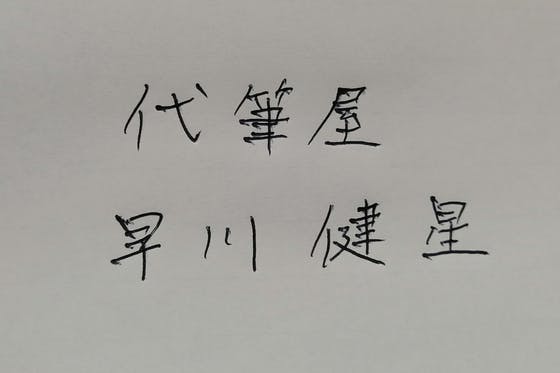 代筆屋
早川 健星